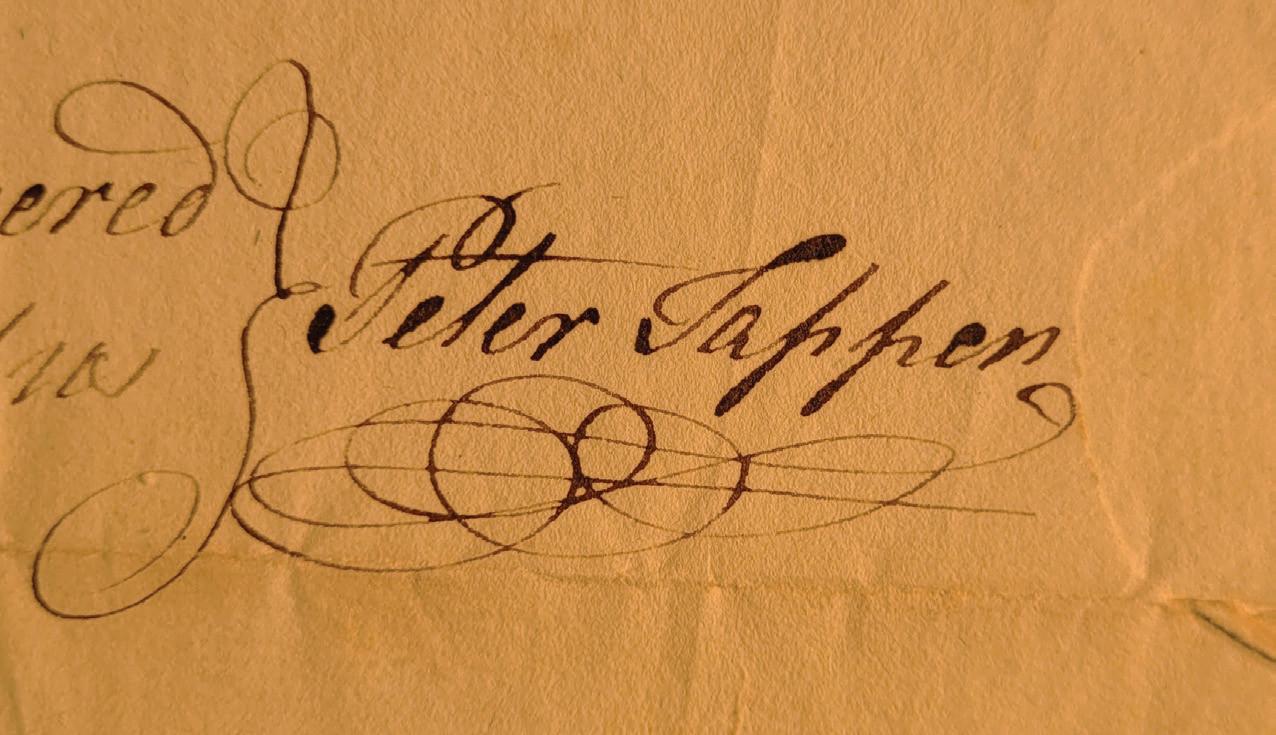 ered
Peter Tappen